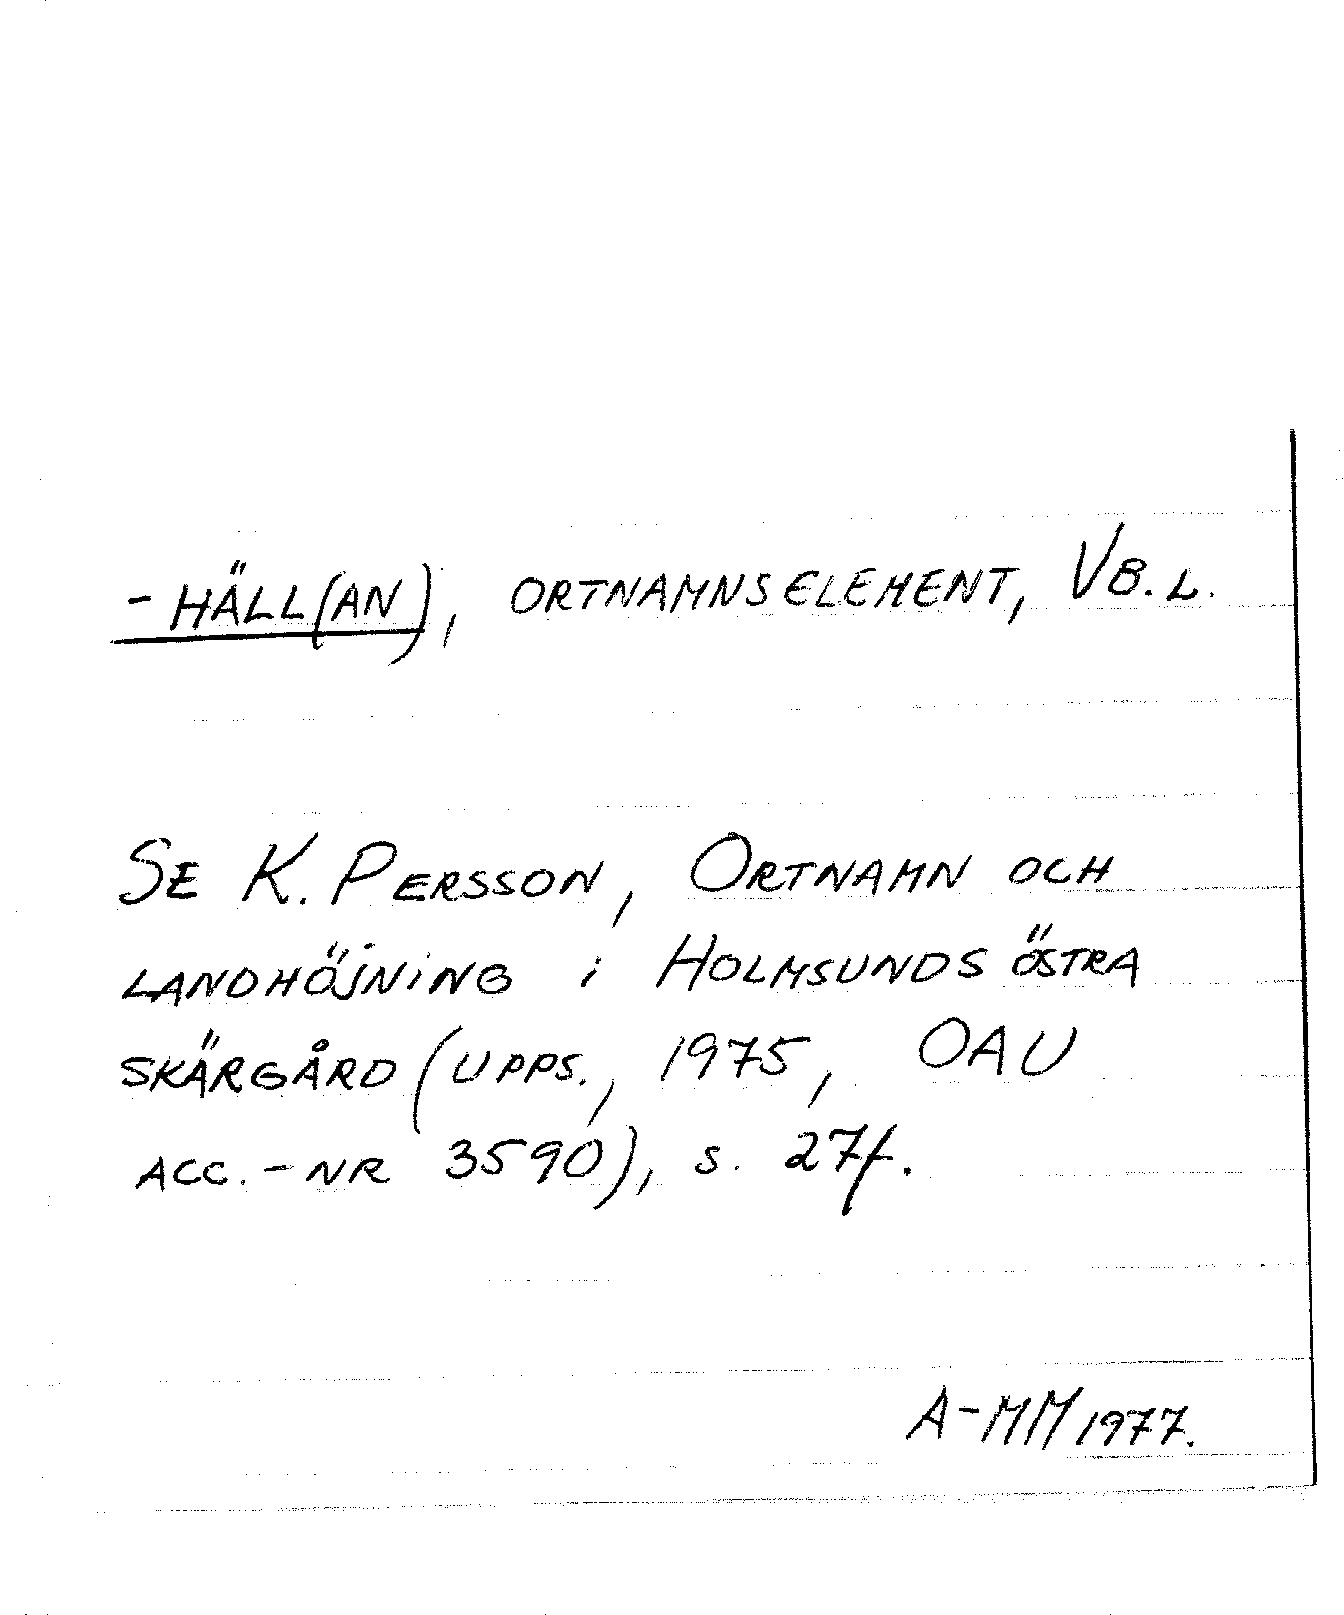 -HÄLL(AN), ORTNAMNSELEMENT, VB.L.
SE K. PERSSON, ORTNAMN OCH
LANDHÖJNING i HOLMSUNDS ÖSTRA
SKÄRGÅRD (UPPS., 1975, OAU
ACC.-NR 3590), S. 27f.
A-MM 1977.